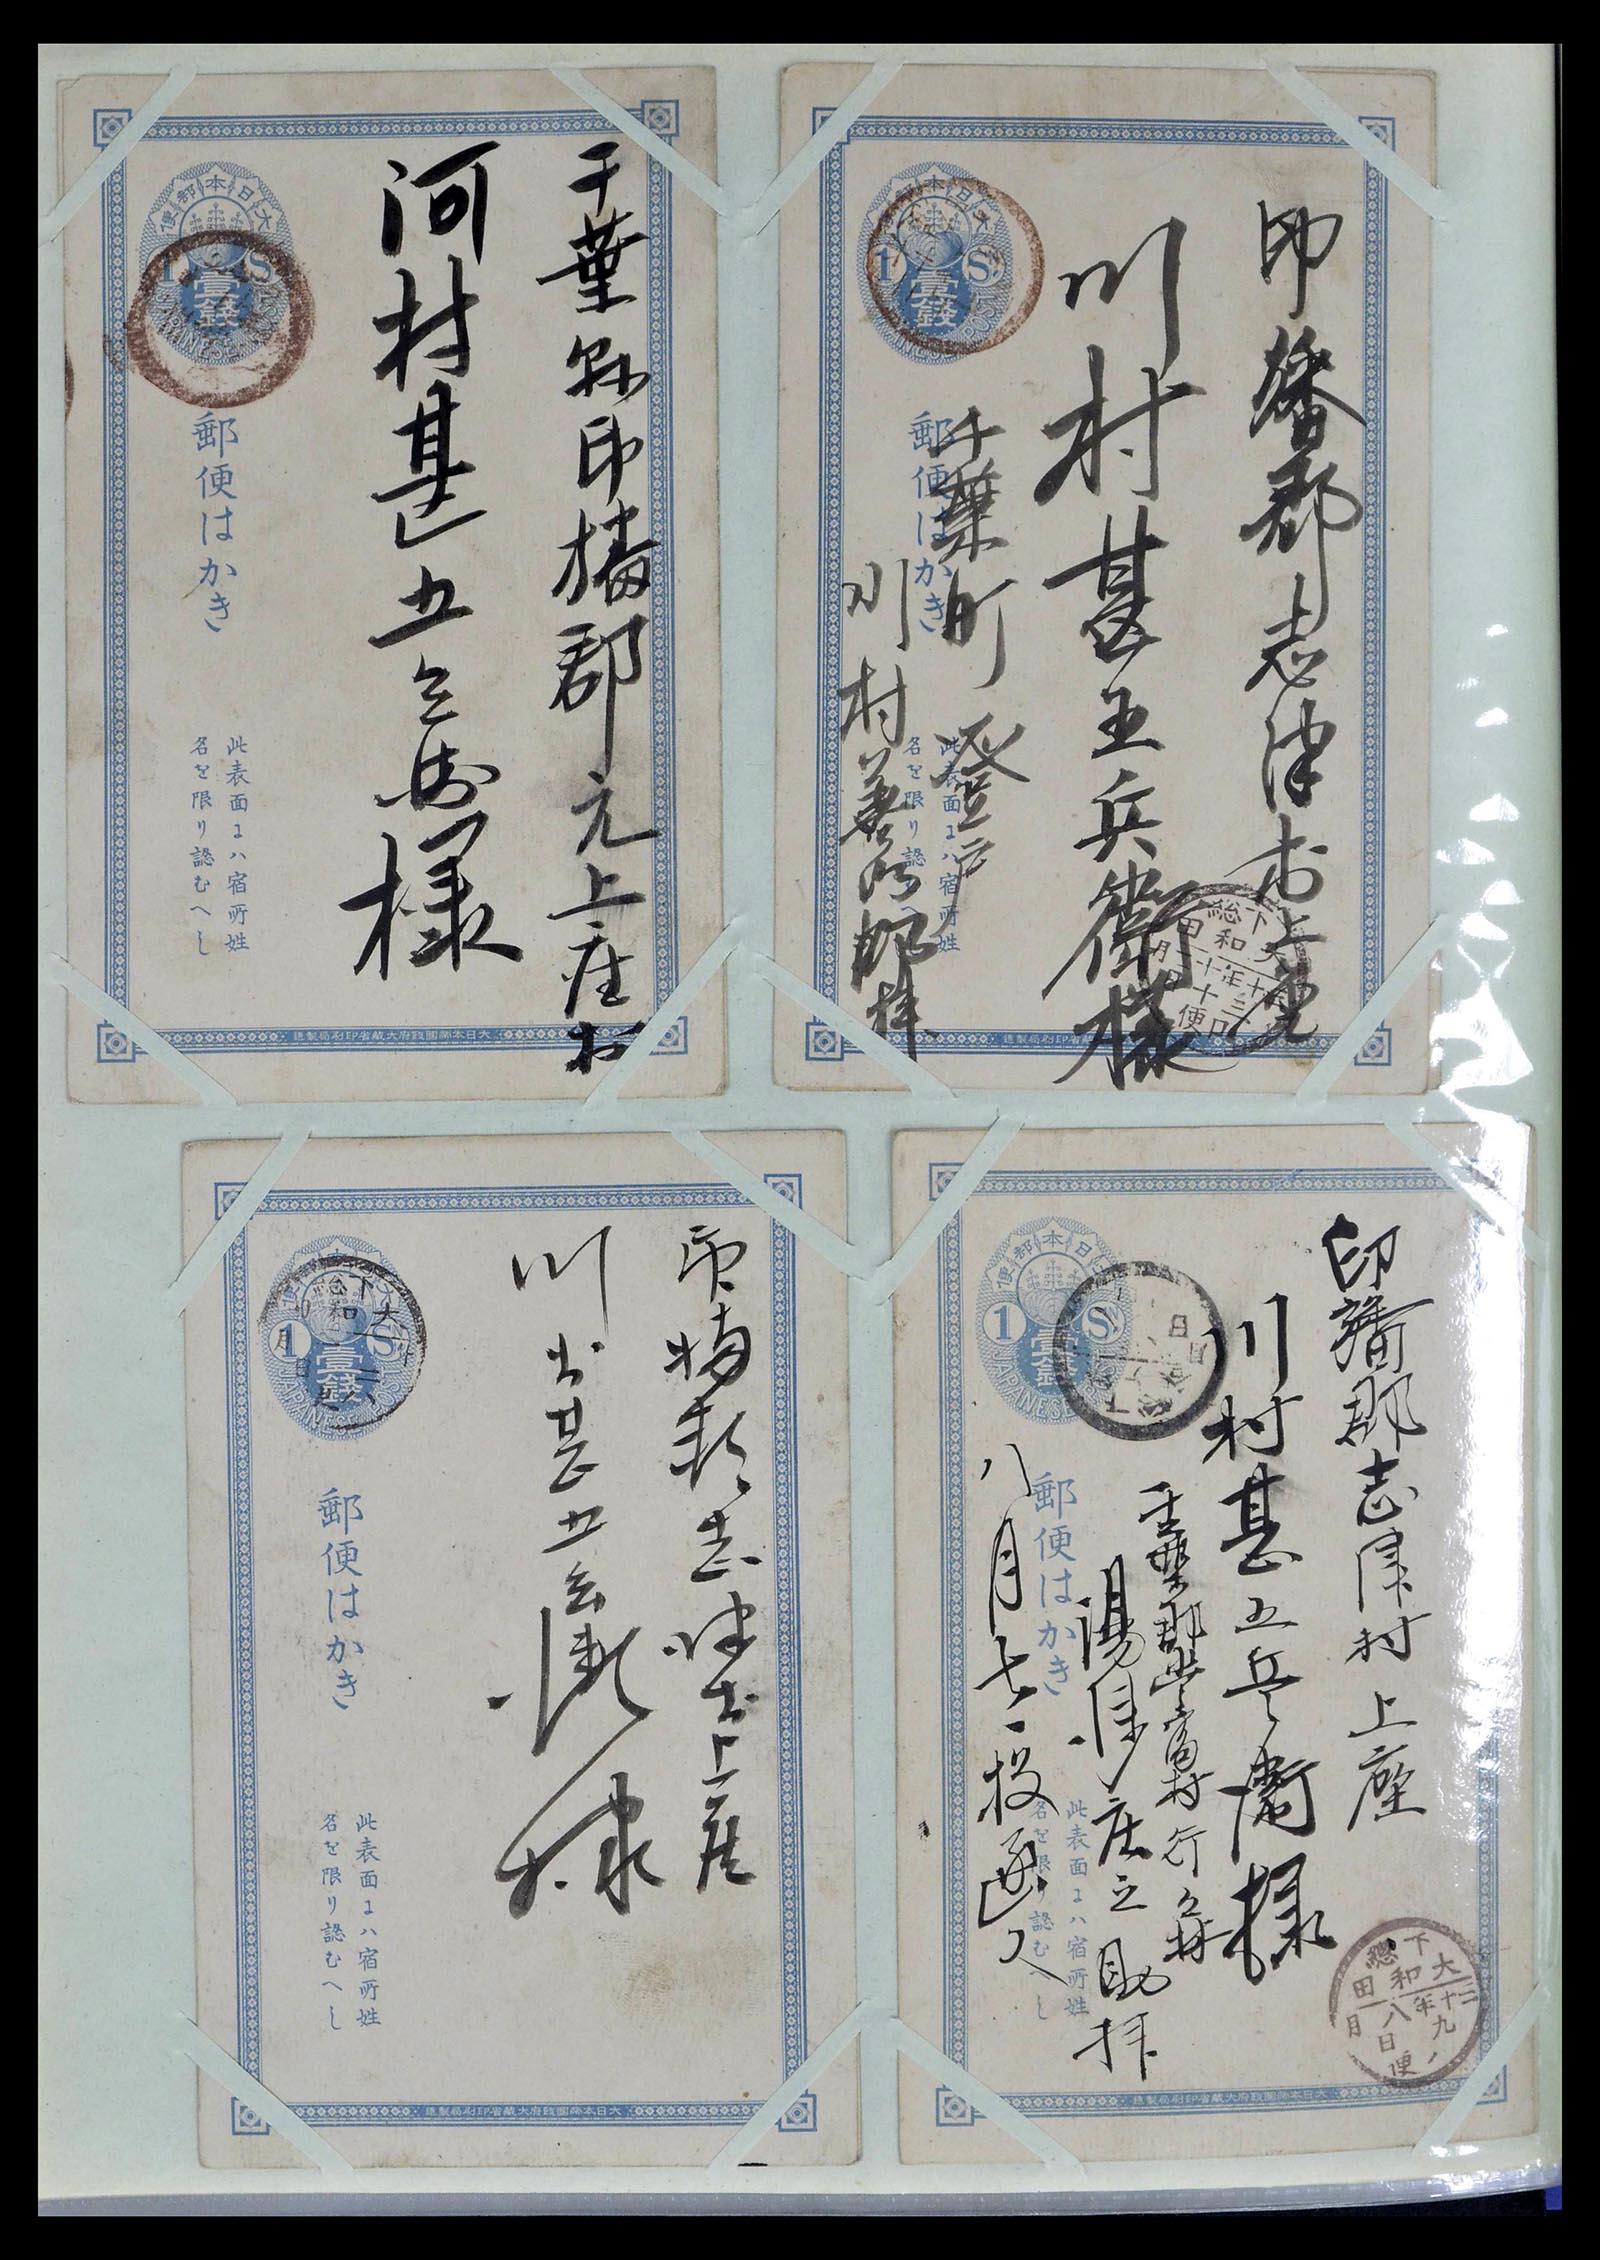 大日本郵便
1 S
壹錢
JAPANESE POST
郵便はかき
此表面ニハ宿所姓
名を限り認むへし
大日本帝國政府大藏省印刷局製造
千葉縣印旛郡元上座村
河村甚五兵衛様
大日本郵便
1 S
壹錢
JAPANESE POST
郵便はかき
此表面ニハ宿所姓
名を限り認むへし
大日本帝國政府大藏省印刷局製造
印旛郡志津村上座
川村甚五兵衛様
千葉町登戸
下総
大和田
大日本郵便
1 S
壹錢
JAPANESE POST
郵便はかき
此表面ニハ宿所姓
名を限り認むへし
大日本帝國政府大藏省印刷局製造
印旛郡志津村上座
川村甚五兵衛様
下総
大和田
大日本郵便
1 S
壹錢
JAPANESE
郵便はかき
此表面ニハ宿所姓
名を限り認むへし
大日本帝國政府大藏省印刷局製造
印旛郡志津村上座
川村甚五兵衛様
湯浅庄之助拝
八月七日投函ス
下総
大和田